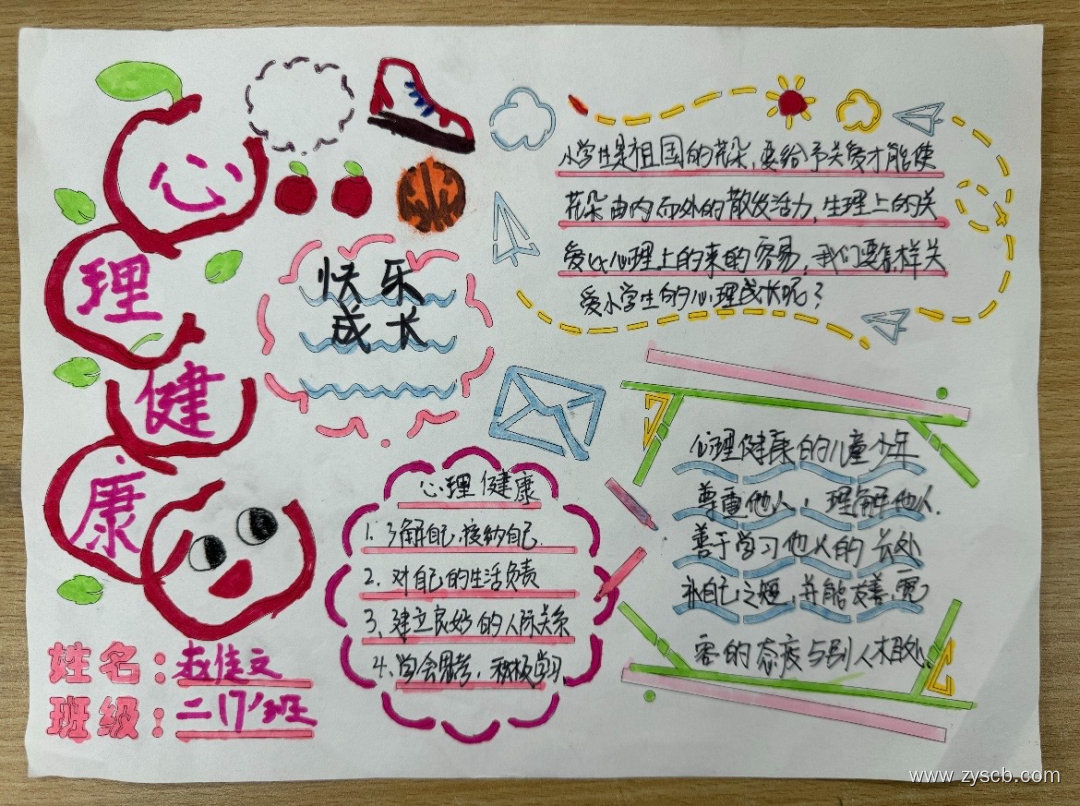 心
理
健
康
姓名：赵佳文
班级：二17班
快乐
成长
小学生是祖国的花朵，要给予关爱才能使
花朵由内而外的散发活力，生理上的关
爱比心理上的来的容易，我们要怎样关
爱小学生的心理成长呢？
心理健康
1.了解自己，接纳自己.
2.对自己的生活负责
3、建立良好的人际关系
4、学会思考，积极学习.
心理健康的儿童少年
尊重他人，理解他人.
善于学习他人的长处
补自己之短，并能友善，宽
容的态度与别人相处.
www.zyscb.com